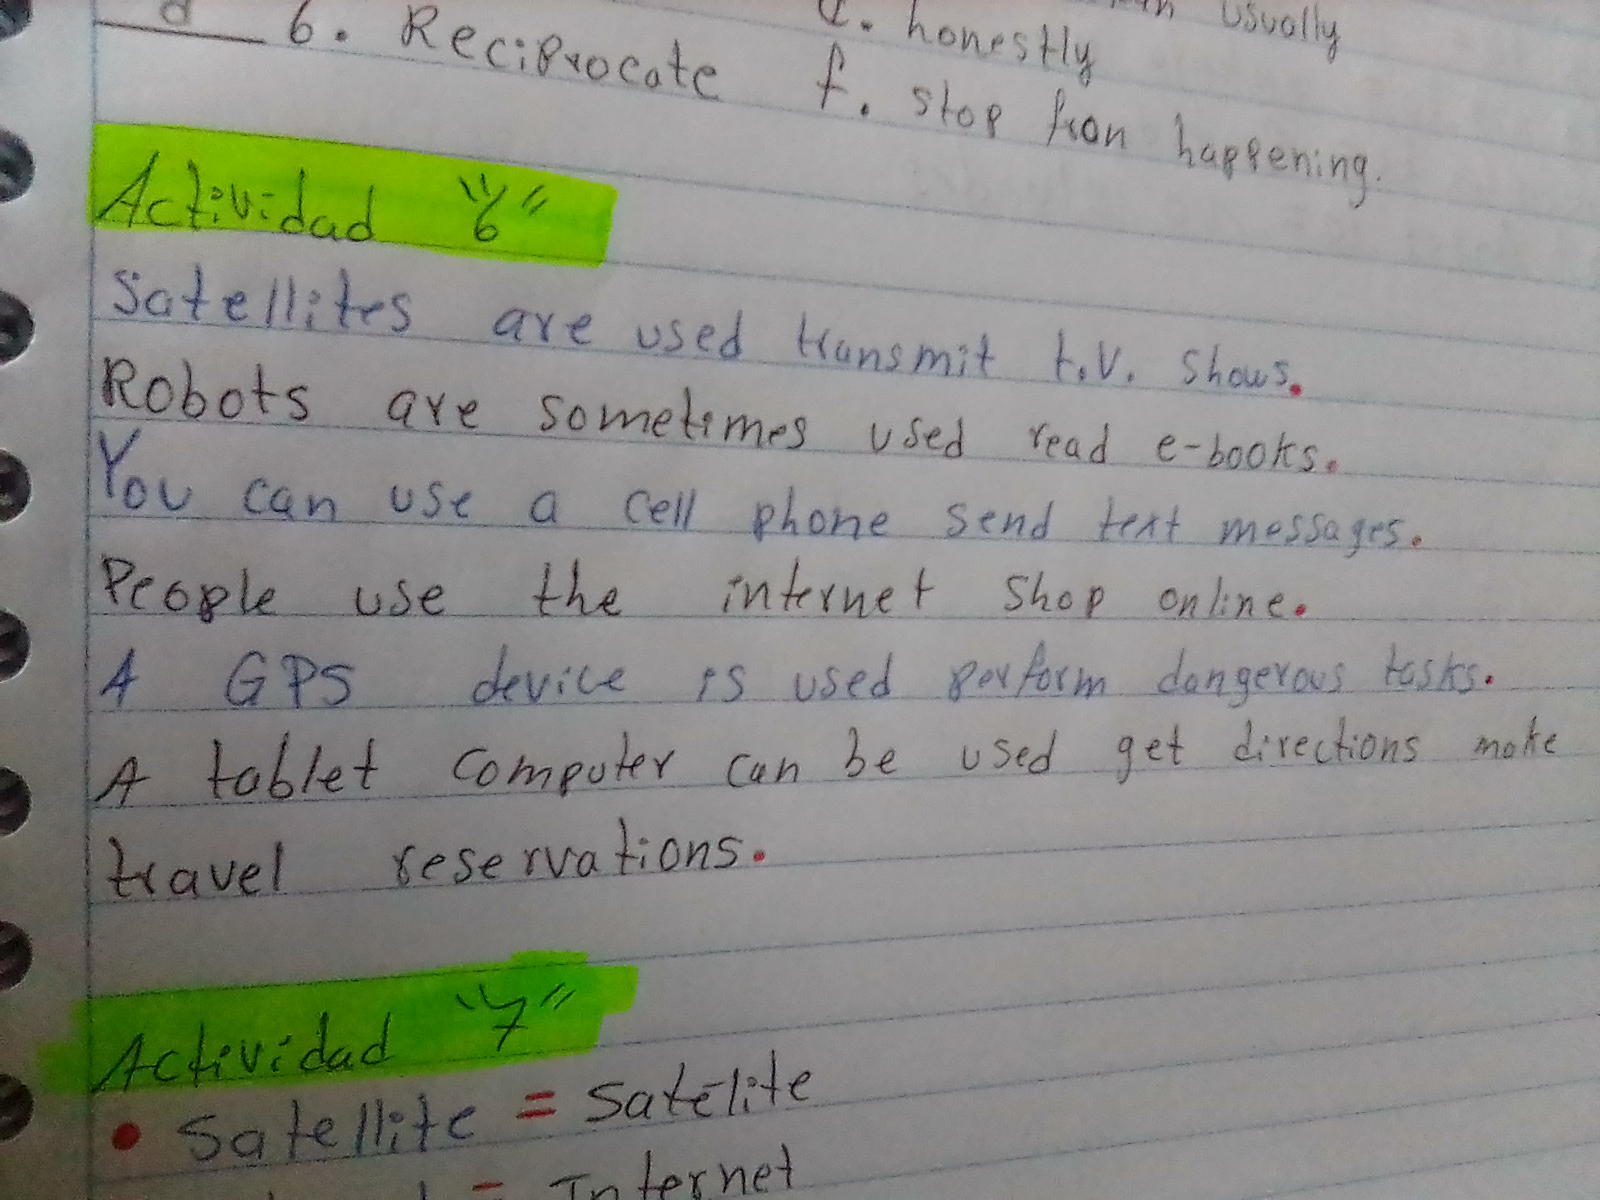 usually
e. honestly
d 6. Reciprocate f. stop fron happening.
Actividad "6"
Satellites are used transmit t.v. shows.
Robots are sometimes used read e-books.
You can use a cell phone send text messages.
People use the internet shop online.
A GPS device is used perform dangerous tasks.
A tablet computer can be used get directions make
travel reservations.
Actividad "7"
• Satellite = Satélite
= Internet